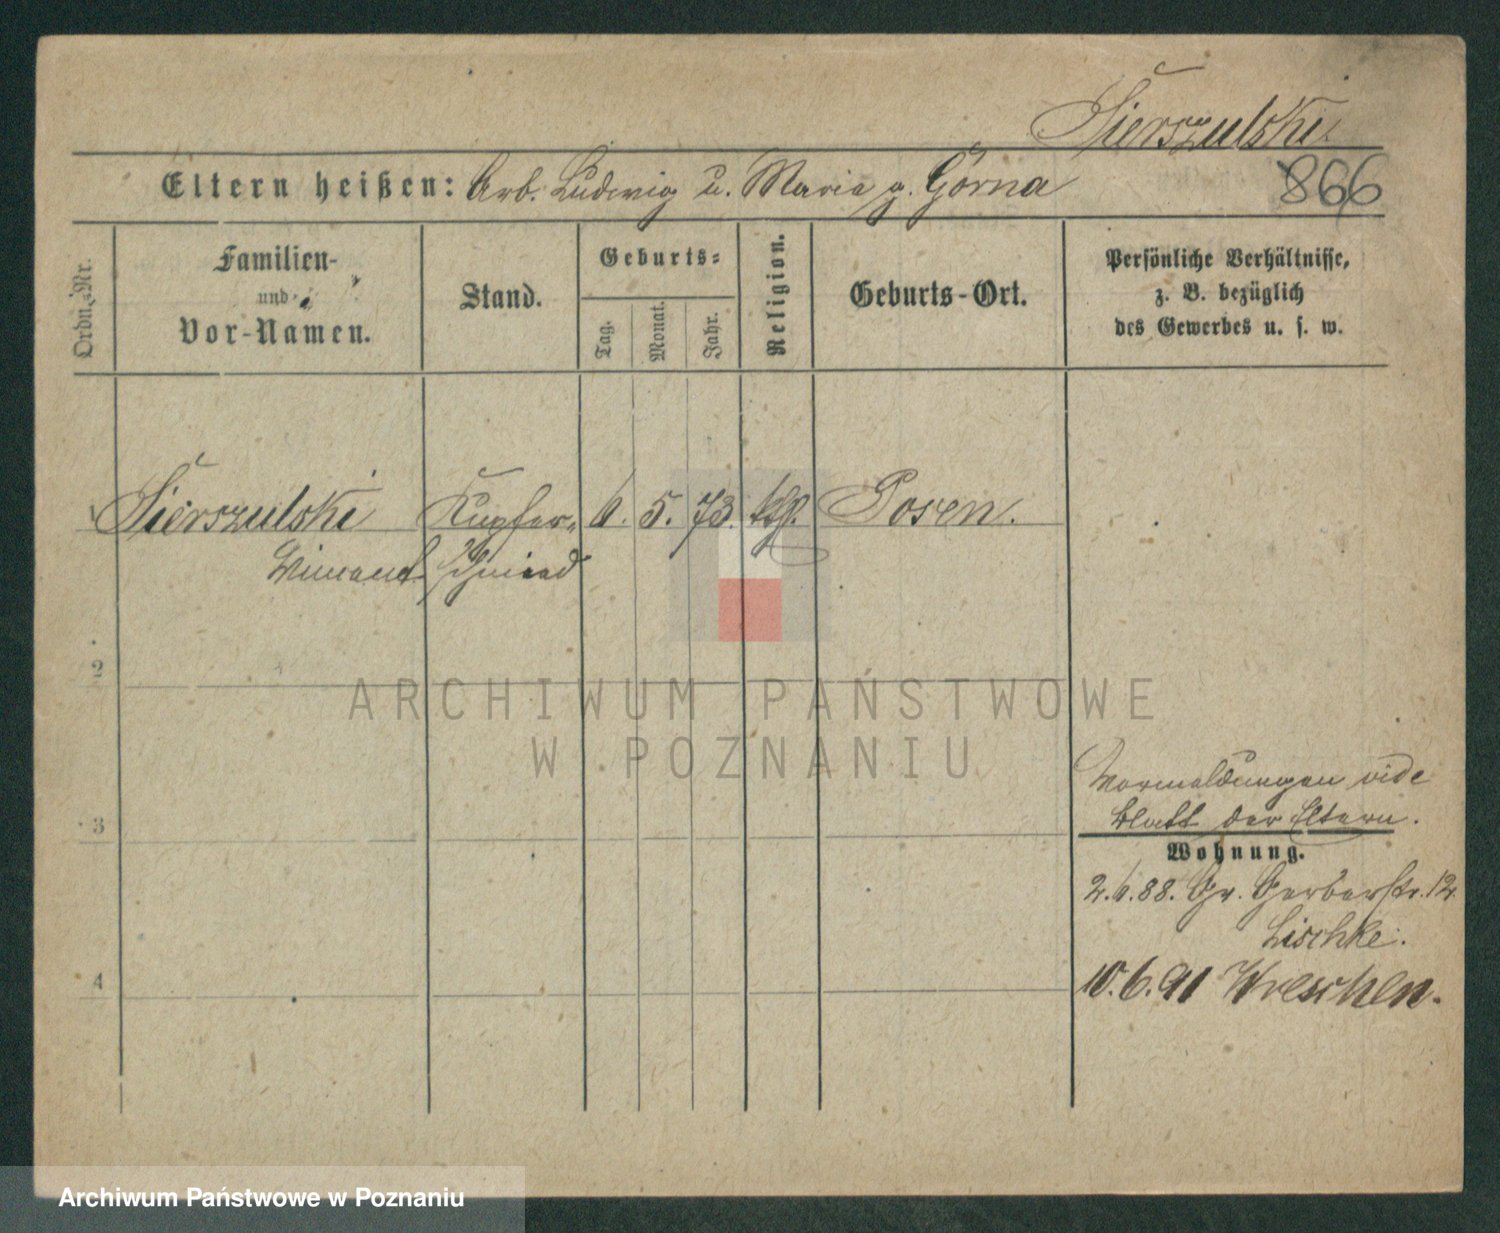 Sierszulski
Eltern heißen: Arb. Ludwig u. Maria g. Górna
866
Ordn.-Nr.
Familien-
und
Vor-Namen.
Stand.
Geburts-
Tag.
Monat.
Jahr.
Religion.
Geburts-Ort.
Persönliche Verhältnisse,
z. B. bezüglich
des Gewerbes u. s. w.
1 Sierszulski Kupfer- 6. 5. 73. kth. Posen.
schmied
2
3
4
Vormeldungen vide
Blatt der Eltern.
Wohnung.
2.6.88. Gr. Gerberstr. 12
Lischke.
10.6.91 Wreschen.
ARCHIWUM PAŃSTWOWE
W POZNANIU
Archiwum Państwowe w Poznaniu